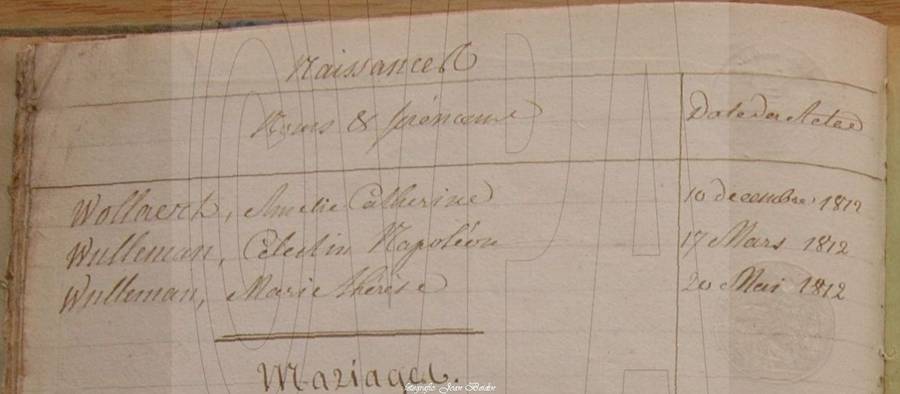 Naissances
Noms & prénoms Date des Actes
Wollaert, Amelie Catherine 10 decembre 1812
Wulleman, Célestin Napoléon 17 Mars 1812
Wulleman, Marie thérèse 20 Mai 1812
Mariages.
fotografie: Joan Beidon